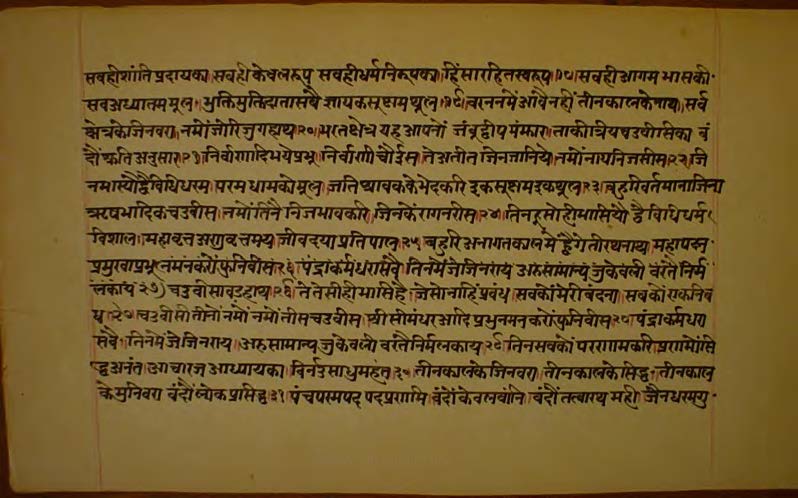 सबहीशांतिप्रदायका सबहीकेवलरूप सबहीधर्मनिरूपका हिंसारहितस्वरूप १८ सबहीआगमभासकी
सबअध्यातममूल भुक्तिमुक्तिदातासबै ज्ञायकसूक्षमथूल १९ बरननमेंआंवैनहीं तीनकालकेनाथ सर्व
क्षेत्रकेजिनवरा नमोंजोरिजुगहाथ २० भरतक्षेत्रयहआपनों जंबूद्वीपमंझार ताकी चउबीसिका बं
दौं अनुसार २१ निर्वाणादिभयेप्रभू निर्वाणी तेअतीतजिनजानिये नमोंनायनिजसीस २२ जि
विधिधरम परमधामकोमूल जतिश्रावककेभेदकरि इकसूक्षमइकथूल २३ बहुरिवर्तमानाजिना
ऋषभादिकचउबीस नमोंतिनैंनिजभावकरि जिनकेरागनरीस २४ द्वैविधिधर्म
विशाल महाव्रतअणुव्रतमय जीवदयाप्रतिपाल २५ बहुरिअनागतकालमें ह्वैंगेतीरथनाथ महापदम
प्रमुखाप्रभू नमनकरों २६ पंद्राकर्मधरासबै तिनमेंजेजिनराय अरुसामान्यजुकेवली बरतैनिर्म
लकाय २७ चउबीसौ २८ तेतेसीहीभासिहै जेसोनाहिंप्रबंध सबकोंमेरीबंदना
चउबीसीतीनोंनमों नमोंतीसचउबीस श्रीसीमंधरआदिप्रभु नमनकरों २८ पंद्राकर्मधरा
सबै तिनमेंजेजिनराय अरुसामान्यजुकेवली बरतैनिर्मलकाय २९ तिनसबकोंपरणामकरि प्रणमोंसि
द्धअनंत आचारजआध्यायका बिनऊंसाधुमहंत ३० तीनकालकेजिनवरा तीनकालकेसिद्ध तीनकाल
केमुनिवरा बंदौंलोकप्रसिद्ध ३१ पंचपरमपदपदप्रणमि बंदौंकेवलवांनि बंदौंतत्वारथमही जैनधरमगु